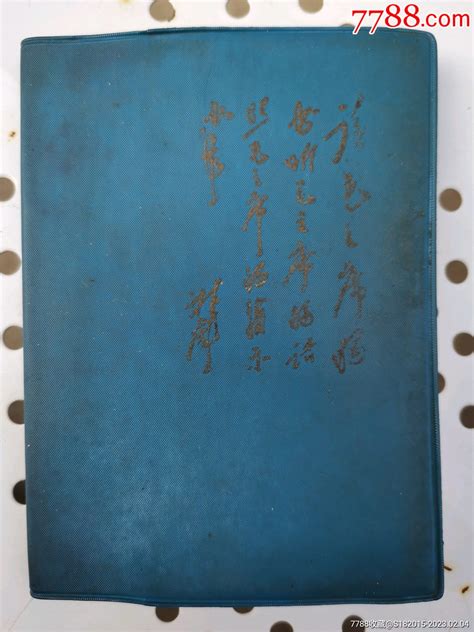 7788.com
读毛主席的
书听毛主席的话
照毛主席的指示
办事
林彪
7788收藏@S182015-2023.02.04